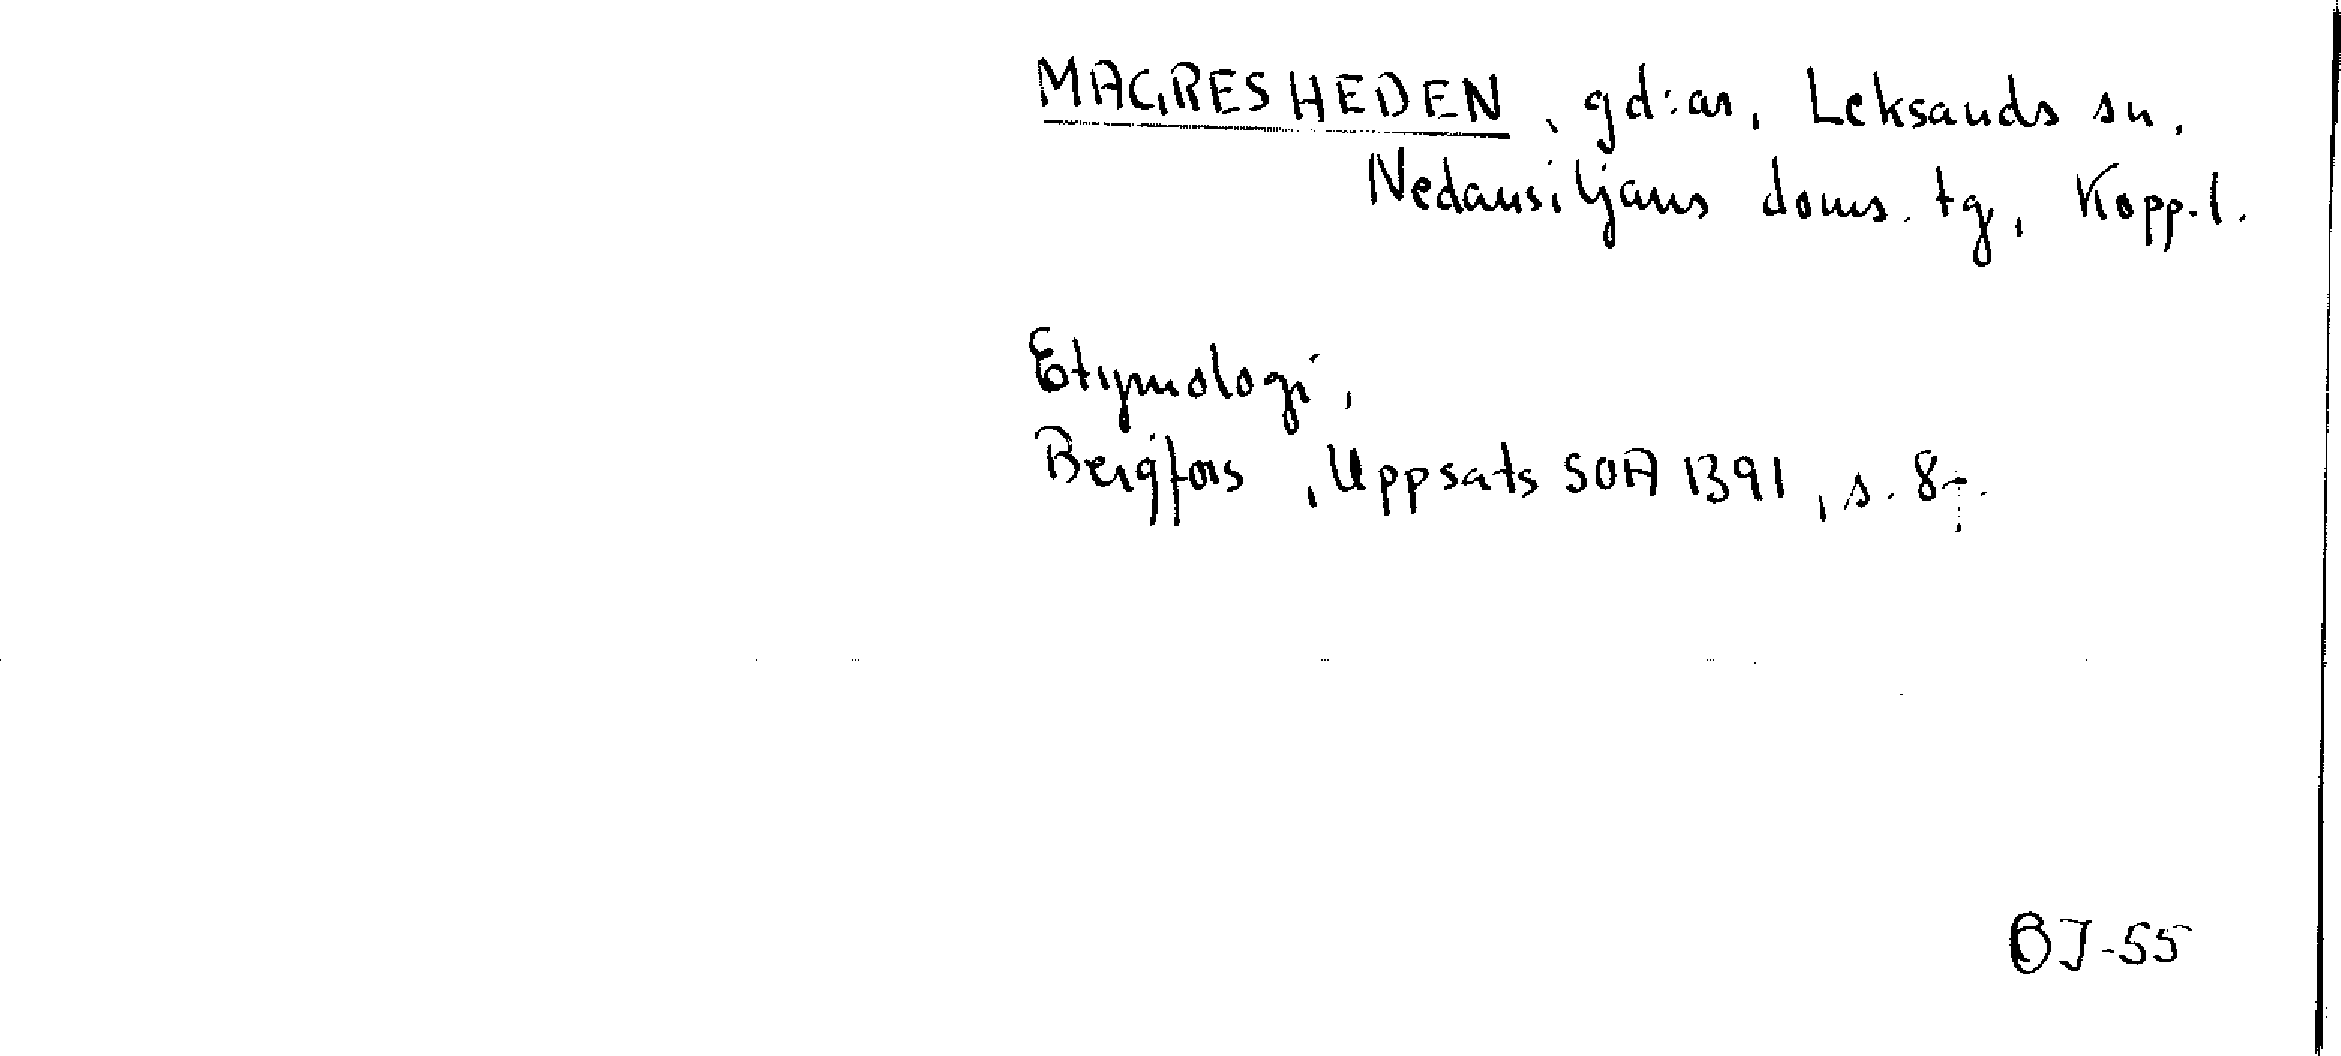 MAGRESHEDEN, gd:ar, Leksands sn,
Nedansiljans doms. tg, Kopp.l.
Etymologi,
Bergfors, Uppsats SOA 1391, s. 87.
BJ-55